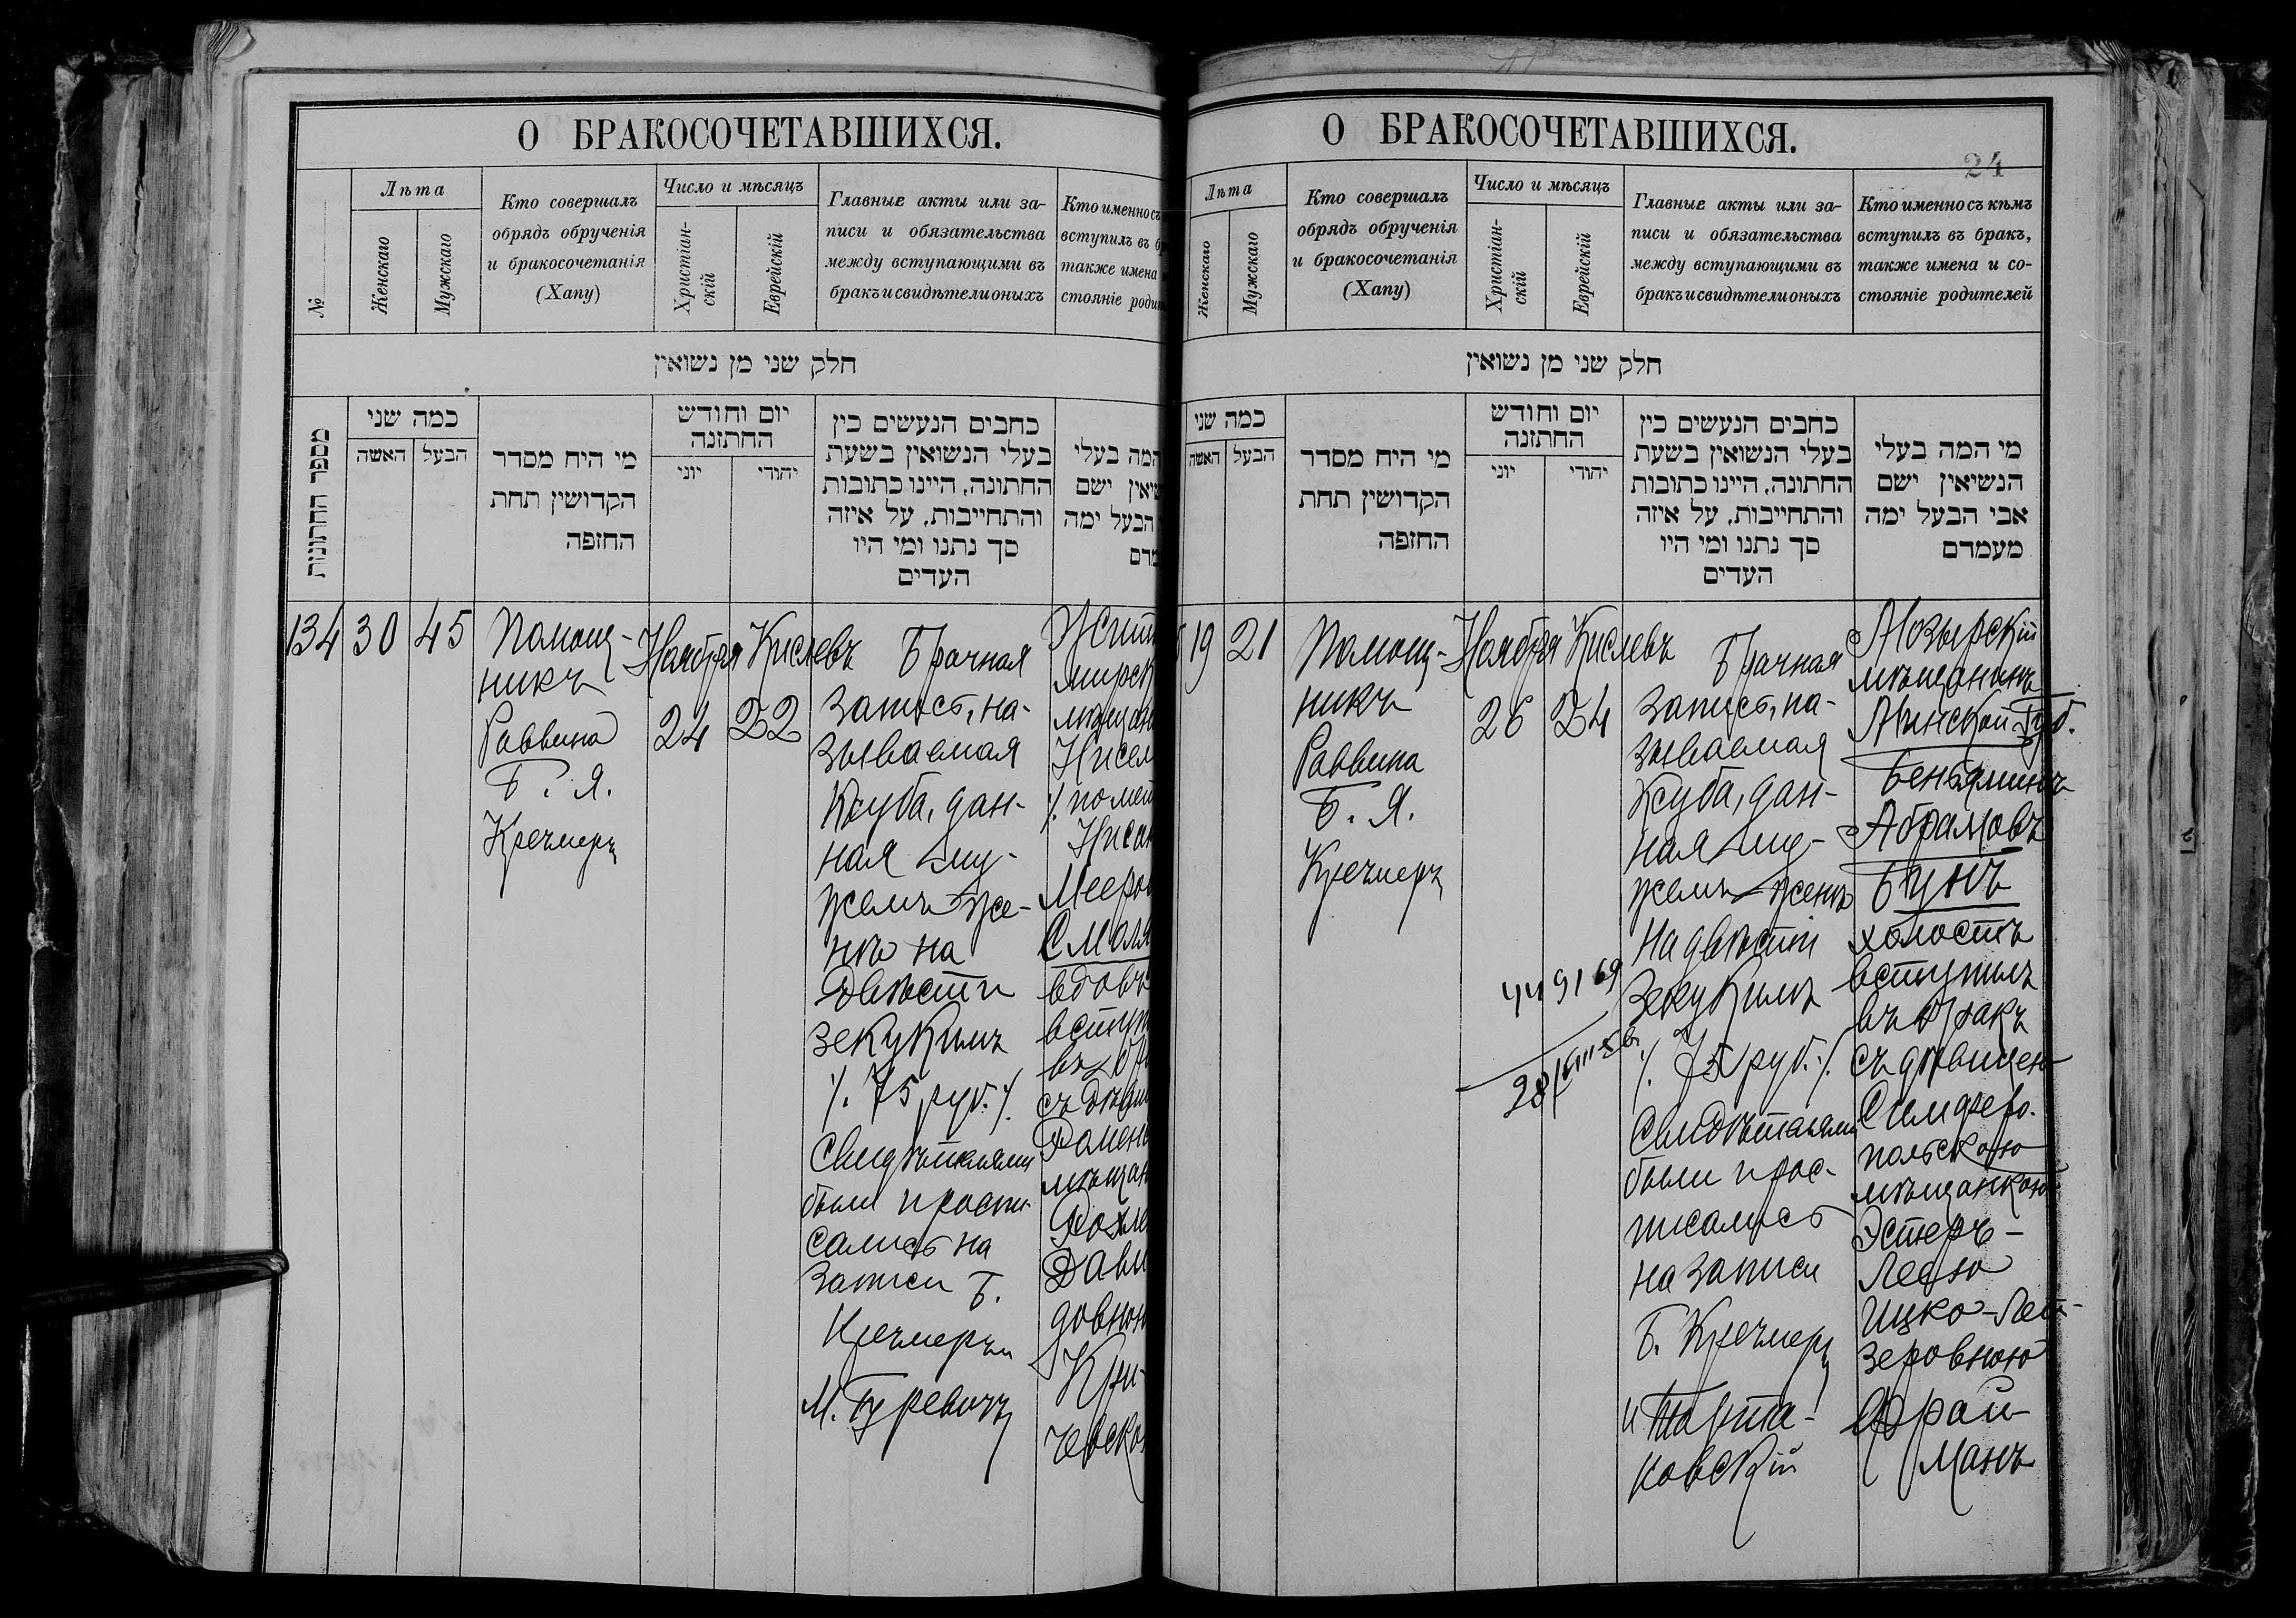 О БРАКОСОЧЕТАВШИХСЯ.
№
Лѣта
Женскаго
Мужскаго
Кто совершалъ
обрядъ обрученія
и бракосочетанія
(Хапу)
Число и мѣсяцъ
Христіан-
скій
Еврейскій
Главные акты или за-
писи и обязательства
между вступающими въ
бракъ и свидѣтели оныхъ
Кто именно съ
вступилъ въ б
также имена
стояніе роди
חלק שני מן נשואין
מספר החתונות
כמה שני
האשה
הבעל
מי היח מסדר
הקדושין תחת
החזפה
יום וחודש
החתזנה
יוני
יהודי
כחבים הנעשים כין
בעלי הנשואין בשעת
החתונה, היינו כתובות
והתחייבות, על איזה
סך נתנו ומי היו
העדים
המה בעלי
שיאין ישם
הבעל ימה
מדם
134
30
45
Помощ-
никъ
Раввина
Б. Я.
Кречмеръ
Ноября
24
Кислевъ
22
Брачная
запись, на-
зываемая
Ксуба, дан-
ная му-
жемъ же-
нѣ на
двѣсти
зекукимъ
/. 75 руб. /.
Свидѣтелями
были
сались на
записи Б.
Кречмеръ и
М. Гуревичъ
Жито
мирск
мѣщан
Нисел
/. по
Нисан
Мееро
Смоля
вдовъ
вступ
въ бр
съ дѣви
Ромен
мѣщан
Рохле
Дави
довною
Кри-
чевско
О БРАКОСОЧЕТАВШИХСЯ.
24
Лѣта
Женскаго
Мужскаго
Кто совершалъ
обрядъ обрученія
и бракосочетанія
(Хапу)
Число и мѣсяцъ
Христіан-
скій
Еврейскій
Главные акты или за-
писи и обязательства
между вступающими въ
бракъ и свидѣтели оныхъ
Кто именно съ кѣмъ
вступилъ въ бракъ,
также имена и со-
стояніе родителей
חלק שני מן נשואין
כמה שני
האשה
הבעל
מי היח מסדר
הקדושין תחת
החזפה
יום וחודש
החתזנה
יוני
יהודי
כחבים הנעשים כין
בעלי הנשואין בשעת
החתונה, היינו כתובות
והתחייבות, על איזה
סך נתנו ומי היו
העדים
מי המה בעלי
הנשיאין ישם
אבי הבעל ימה
מעמדם
19
21
Помощ-
никъ
Раввина
Б. Я.
Кречмеръ
Ноября
26
Кислевъ
24
Брачная
запись, на-
зываемая
Ксуба, дан-
ная му-
жемъ женѣ
на двѣсти
зекукимъ
/. 75 руб. /.
Свидѣтелями
были
писались
на записи
Б. Кречмеръ
и Тарта-
ковскій
Мозырскій
мѣщанинъ
Минской Губ.
Беньяминъ
Абрамовъ
Бунъ
холостъ
вступилъ
въ бракъ
съ дѣвицею
Симферо-
польскою
мѣщанкою
Эстеръ-
Леею
Ицко-Лей-
зеровною
Фрай-
манъ